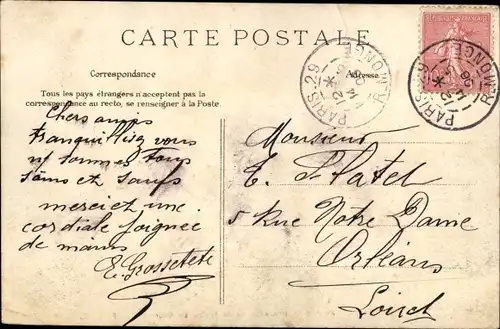 CARTE POSTALE
Correspondance
Adresse
Tous les pays étrangers n'acceptent pas la
correspondance au recto, se renseigner à la Poste.
Chers amis
tranquillisez vous
nous sommes tous
sains et saufs
merci et une
cordiale poignée
de mains
E. Grossetete
Monsieur
E.
5 Rue Nôtre Dame
Orléans
Loiret
PARIS 29
R. MONGE
PARIS 29
R. MONGE